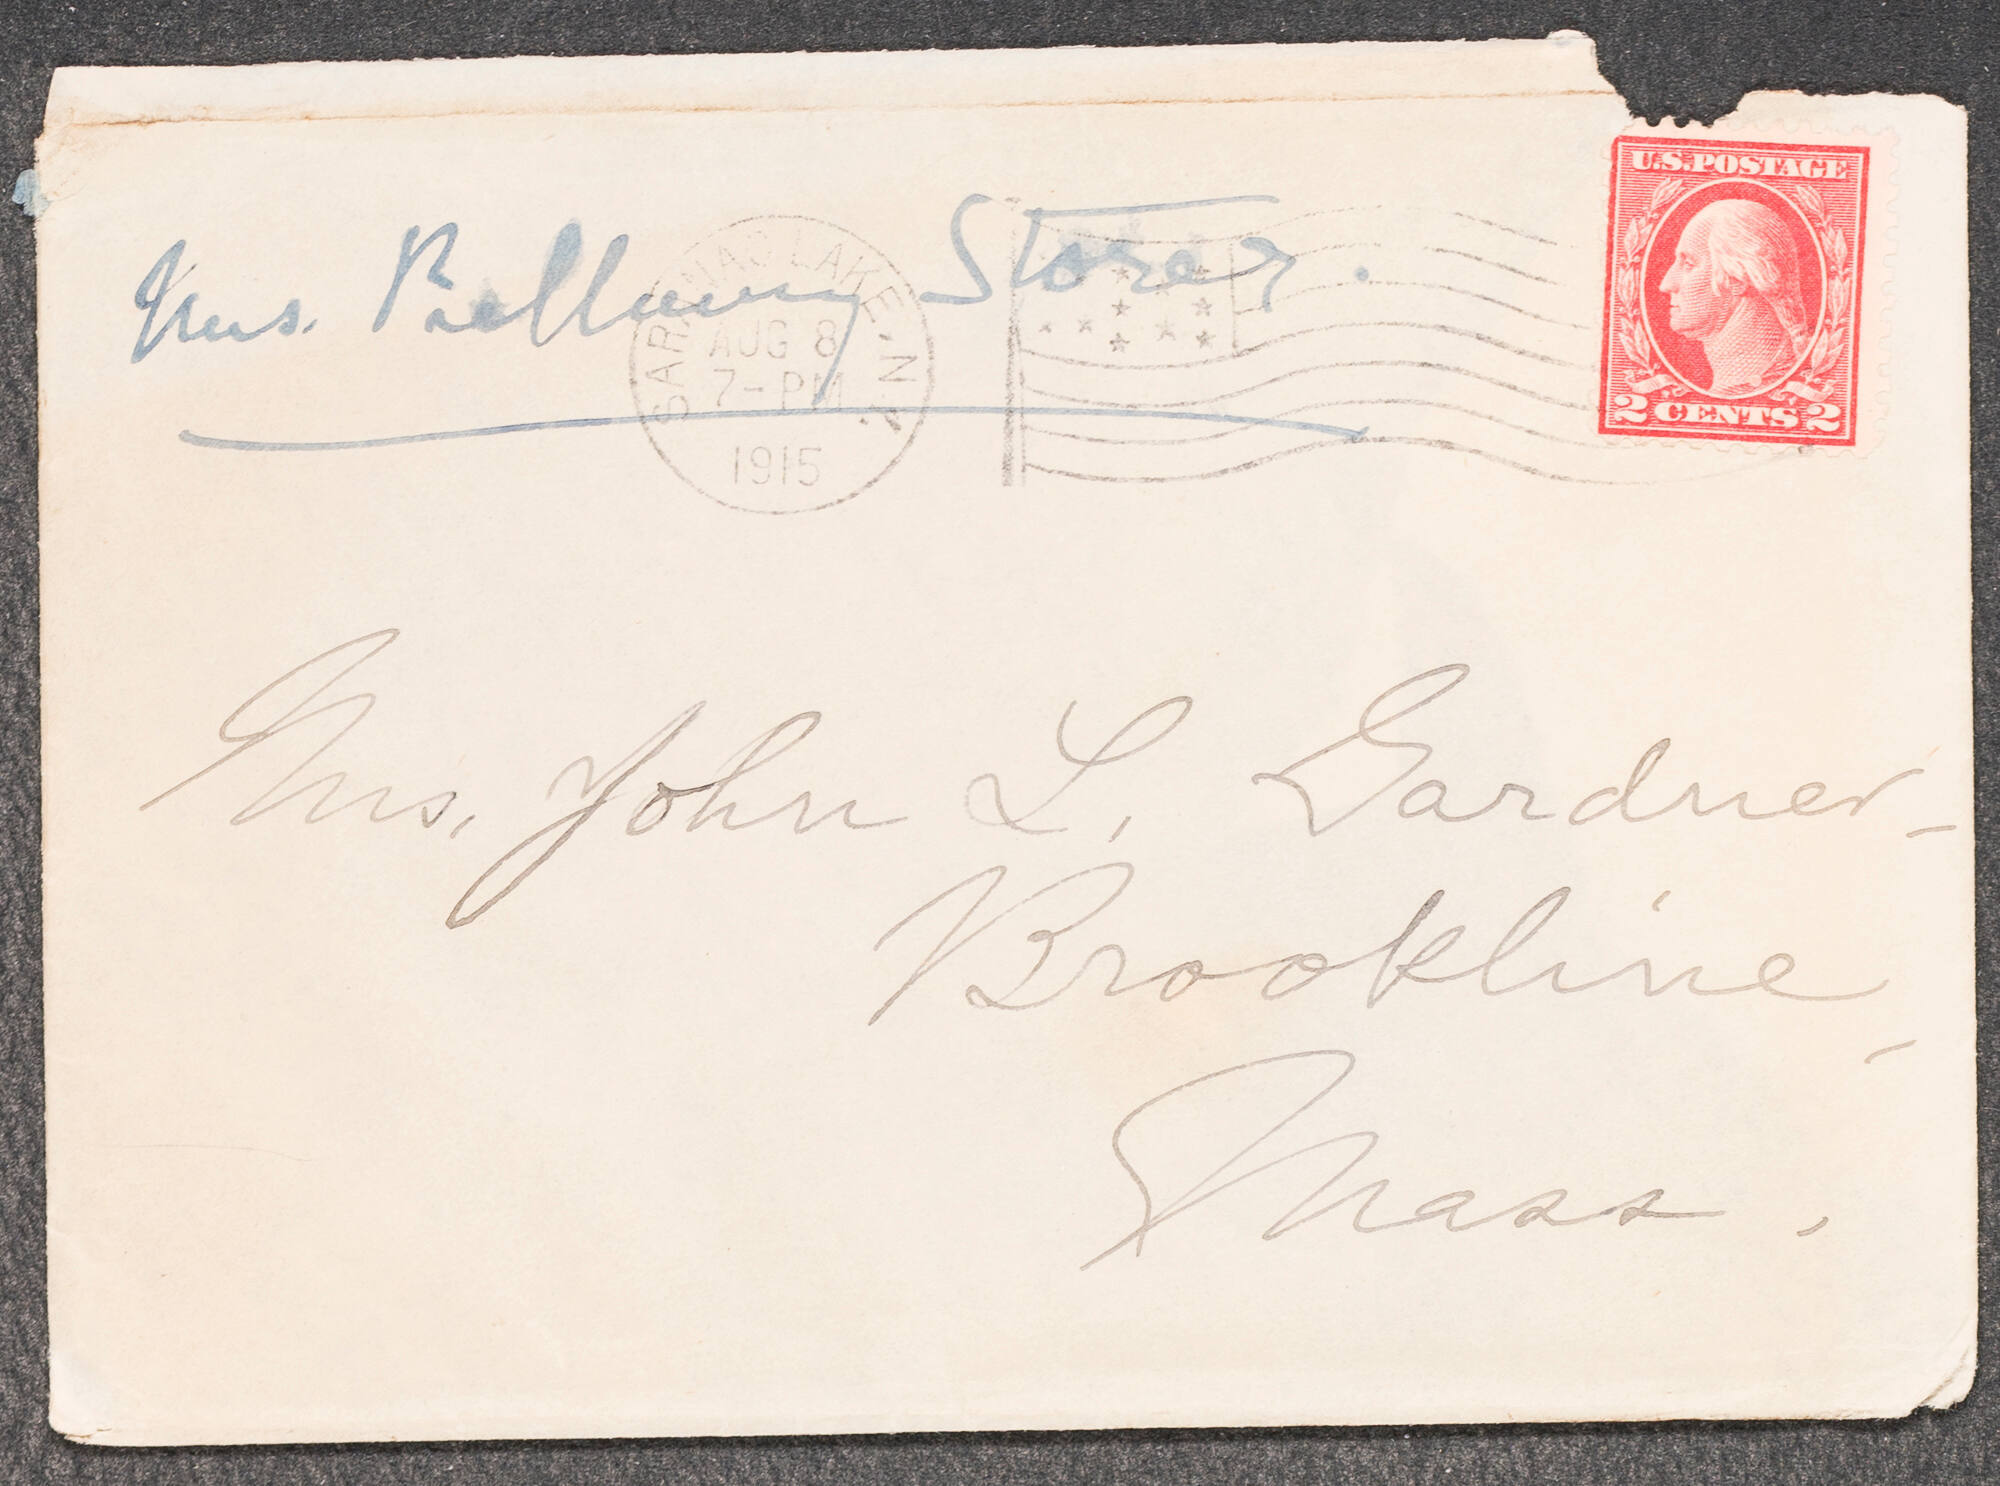 U.S. POSTAGE
Mrs. Bellamy Storer.
SARANAC LAKE, N.Y.
AUG 8
7-PM
1915
2 CENTS 2
Mrs. John L. Gardner
Brookline
Mass.